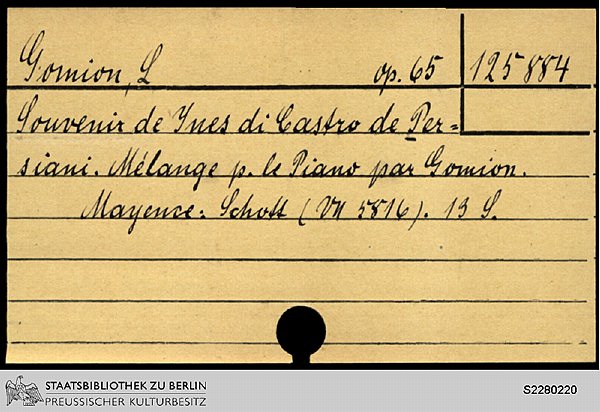 Gomion, L op. 65 125 884
Souvenir de Ines di Castro de Per=
siani. Mélange p. le Piano par Gomion.
Mayence: Schott (VN 5816). 13 S.
STAATSBIBLIOTHEK ZU BERLIN
PREUSSISCHER KULTURBESITZ
S2280220